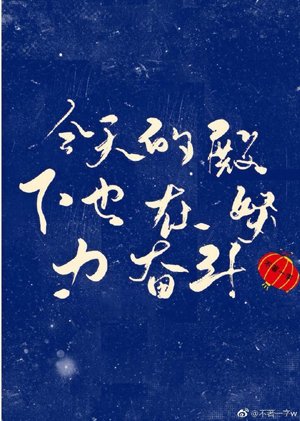 今天的殿
下也在努
力奋斗
@不茗一字w